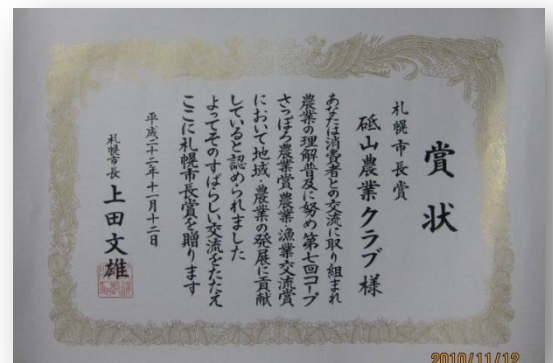 賞状
札幌市長賞
砥山農業クラブ様
あなたは消費者との交流に取り組まれ
農業の理解普及に努め第七回コープ
さっぽろ農業賞農業・漁業交流賞
において地域・農業の発展に貢献
していると認められました
よってそのすばらしい交流をたたえ
ここに札幌市長賞を贈ります
平成二十二年十一月十二日
札幌市長 上田文雄
2010/11/12